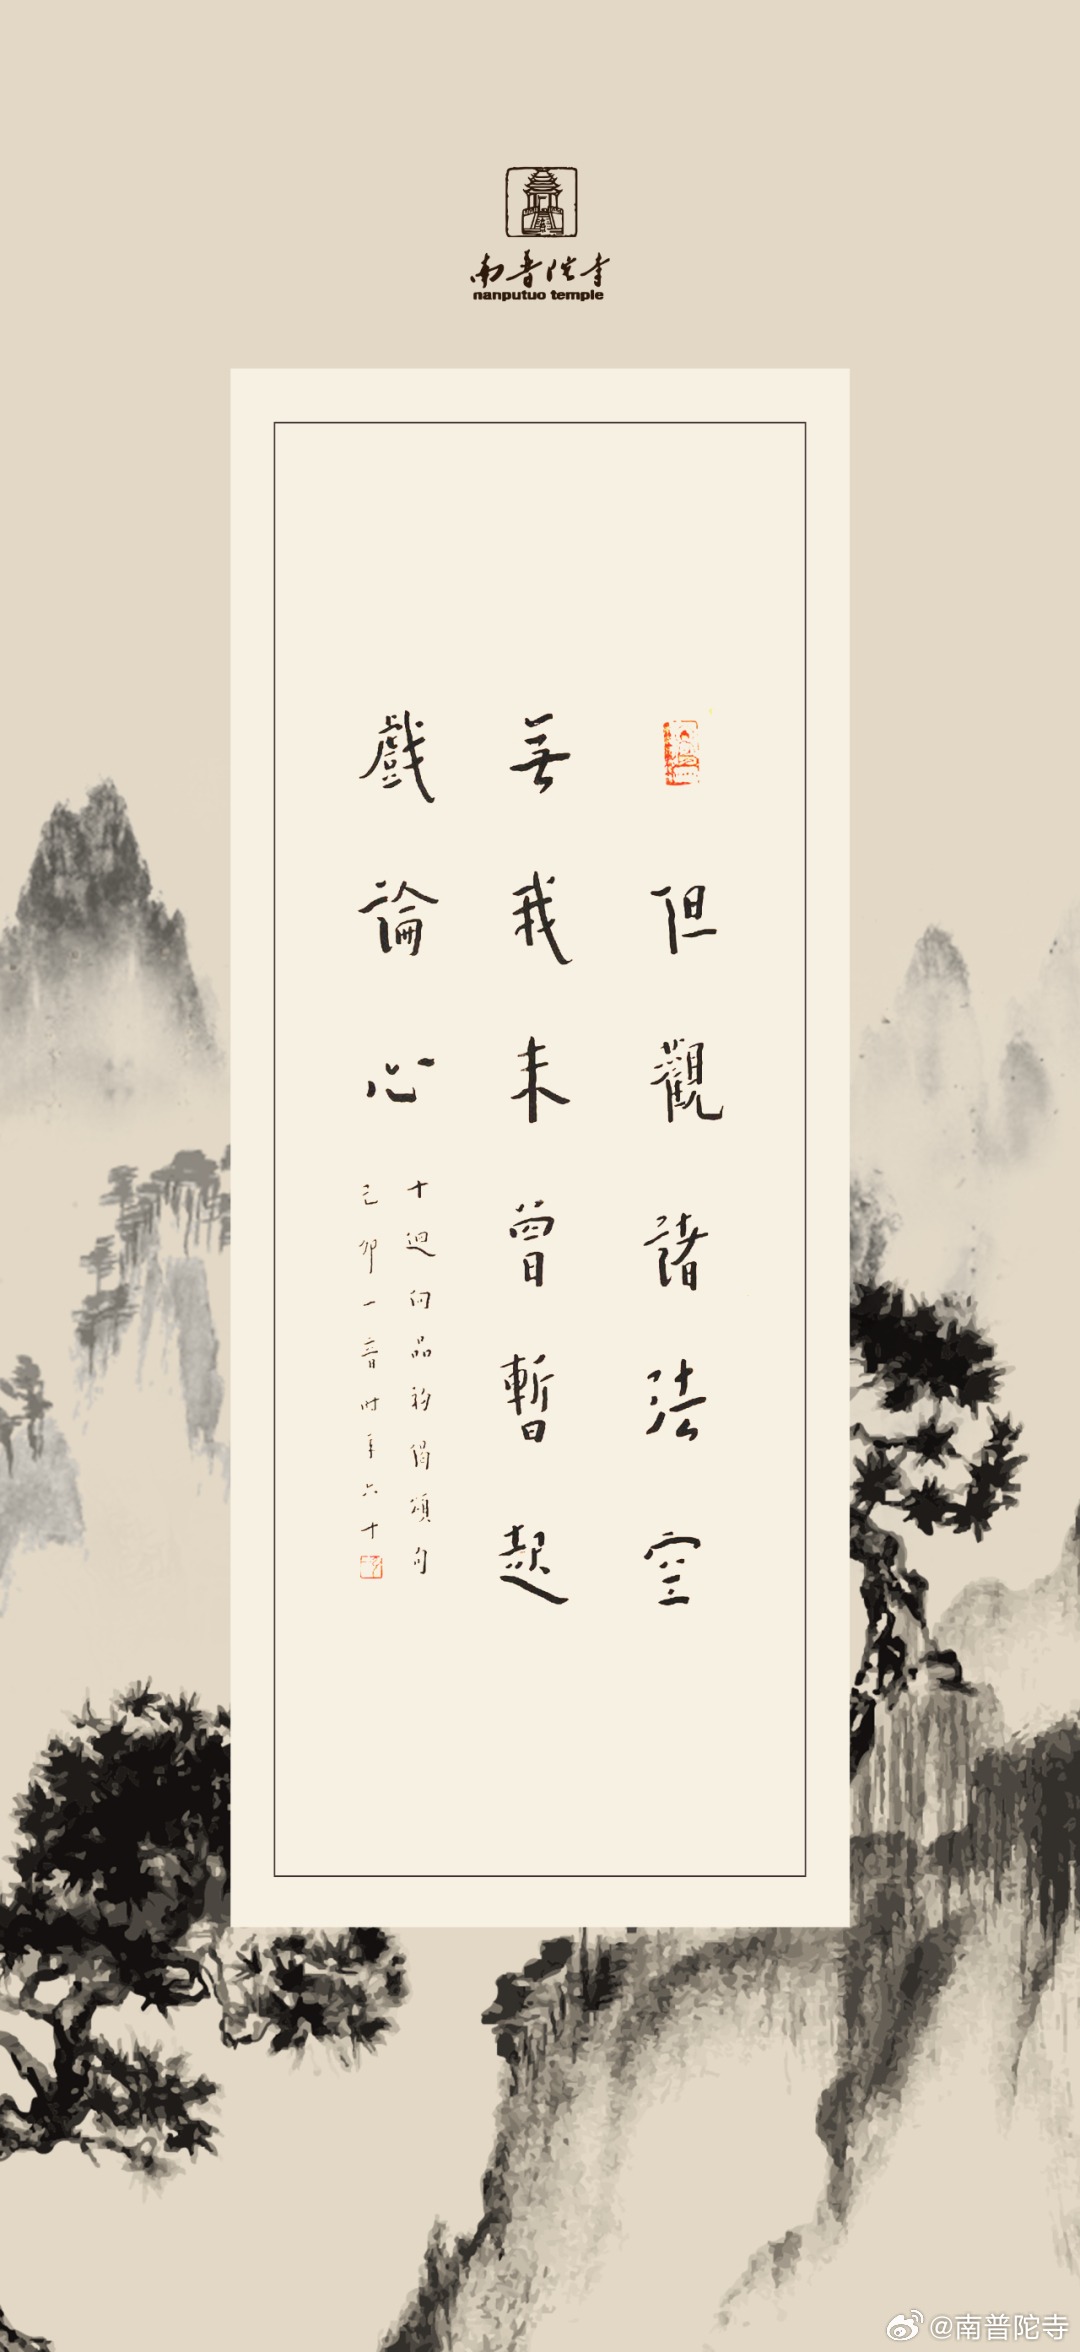 南普陀寺
nanputuo temple
但觀諸法空
無我未曾暫起
戲論心
十迴向品初偈頌句
己卯一音時年六十
@南普陀寺